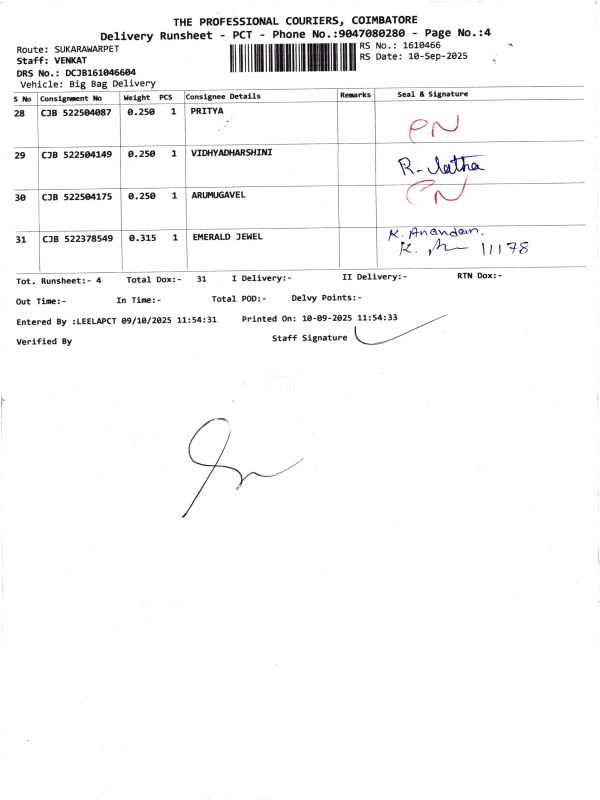 THE PROFESSIONAL COURIERS, COIMBATORE
Delivery Runsheet - PCT - Phone No.:9047080280 - Page No.:4
Route: SUKARAWARPET
RS No.: 1610466
Staff: VENKAT
RS Date: 10-Sep-2025
DRS No.: DCJB161046604
Vehicle: Big Bag Delivery
S No Consignment No Weight PCS Consignee Details Remarks Seal & Signature
28 CJB 522504087 0.250 1 PRITYA PN
29 CJB 522504149 0.250 1 VIDHYADHARSHINI R-latha
30 CJB 522504175 0.250 1 ARUMUGAVEL PN
31 CJB 522378549 0.315 1 EMERALD JEWEL K. Anandan.
K. 11178
Tot. Runsheet:- 4 Total Dox:- 31 I Delivery:- II Delivery:- RTN Dox:-
Out Time:- In Time:- Total POD:- Delvy Points:-
Entered By :LEELAPCT 09/10/2025 11:54:31 Printed On: 10-09-2025 11:54:33
Verified By Staff Signature